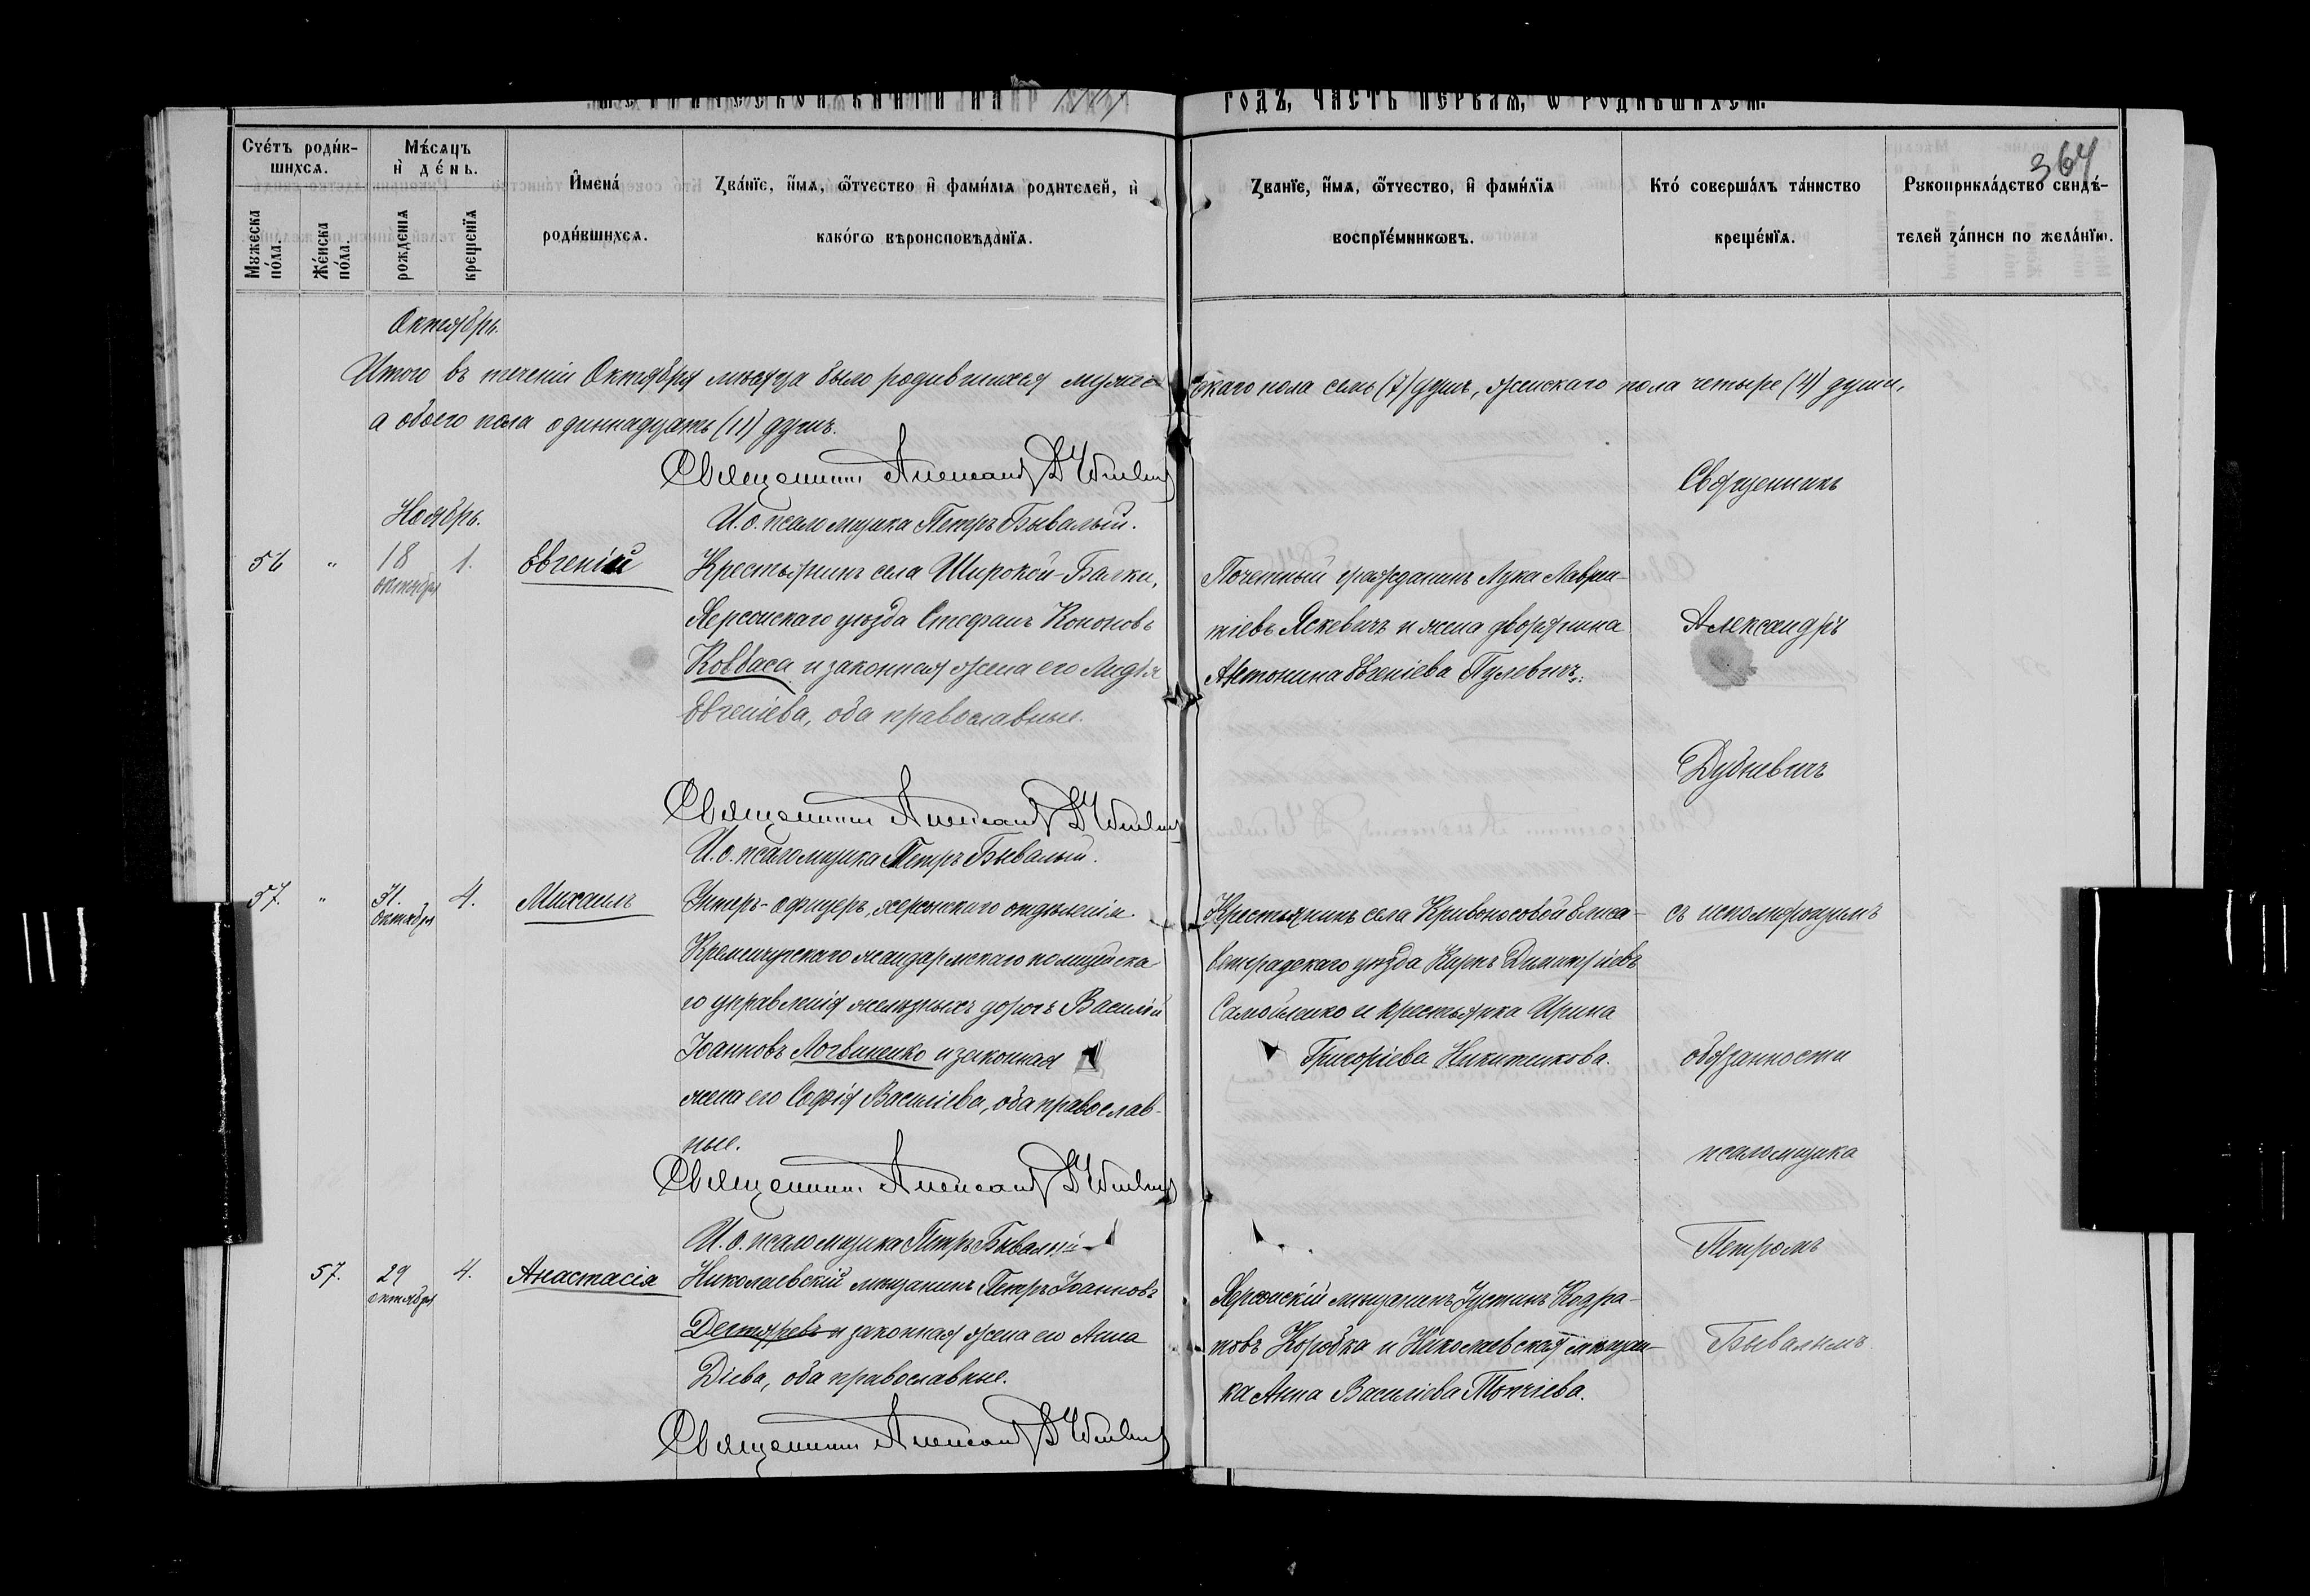 годъ, часть первая, ѡ родившихся.
364
Счетъ родив-
шихся.
Мужеска
пола.
Женска
пола.
Мѣсяцъ
и день.
рожденія
крещенія
Имена
родившихся.
Званіе, имя, ѿчество и фамилія родителей, и
какогѡ вѣроисповѣданія.
Званіе, имя, ѿчество, и фамилія
воспріемникѡвъ.
Кто совершалъ таинство
крещенія.
Рукоприкладство свидѣ-
телей записи по желанію.
Октябрь.
Итого въ теченіи Октября мѣсяца было родившихся мужескаго пола семь (7) душъ, женскаго пола четыре (4) души,
а обоего пола одиннадцать (11) душъ.
Священникъ Александръ Дубневичъ
И. о. псаломщика Петръ Бывалый.
Ноябрь.
56 " 18 октября 1. Евгеній
Крестьянинъ села Широкой-Балки,
Херсонскаго уѣзда Стефанъ Кононовъ
Ковбаса и законная жена его Лидія
Евгеніева, оба православные.
Почетный гражданинъ Лука Лаврен-
тіевъ Яскевичъ и жена дворянина
Антонина Евгеніева Пулевичъ.
Священникъ
Александръ
Дубневичъ
Священникъ Александръ Дубневичъ
И. о. псаломщика Петръ Бывалый.
57. " 31. октября 4. Михаилъ
Унтеръ-офицеръ, херсонскаго отдѣленія
Кременчугскаго жандармскаго полицейска
го управленія желѣзныхъ дорогъ Василій
Іоанновъ Логвиненко и законная
жена его Софія Василіева, оба православ-
ные.
Крестьянинъ села Кривоносовой Елиса-
ветградскаго уѣзда Кирикъ Димитріевъ
Самойленко и крестьянка Ирина
Григоріева Никитикова.
съ исполняющимъ
обязанности
псаломщика
Петромъ
Бывалымъ
Священникъ Александръ Дубневичъ
И. о. псаломщика Петръ Бывалый
57. 29 октября 4. Анастасія
Николаевскій мѣщанинъ Петръ Іоанновъ
Дегтяревъ и законная жена его Анна
Діева, оба православные.
Херсонскій мѣщанинъ Іустинъ Кодра-
товъ Коробка и Николаевская мѣщан-
ка Анна Василіева Топчіева.
Священникъ Александръ Дубневичъ